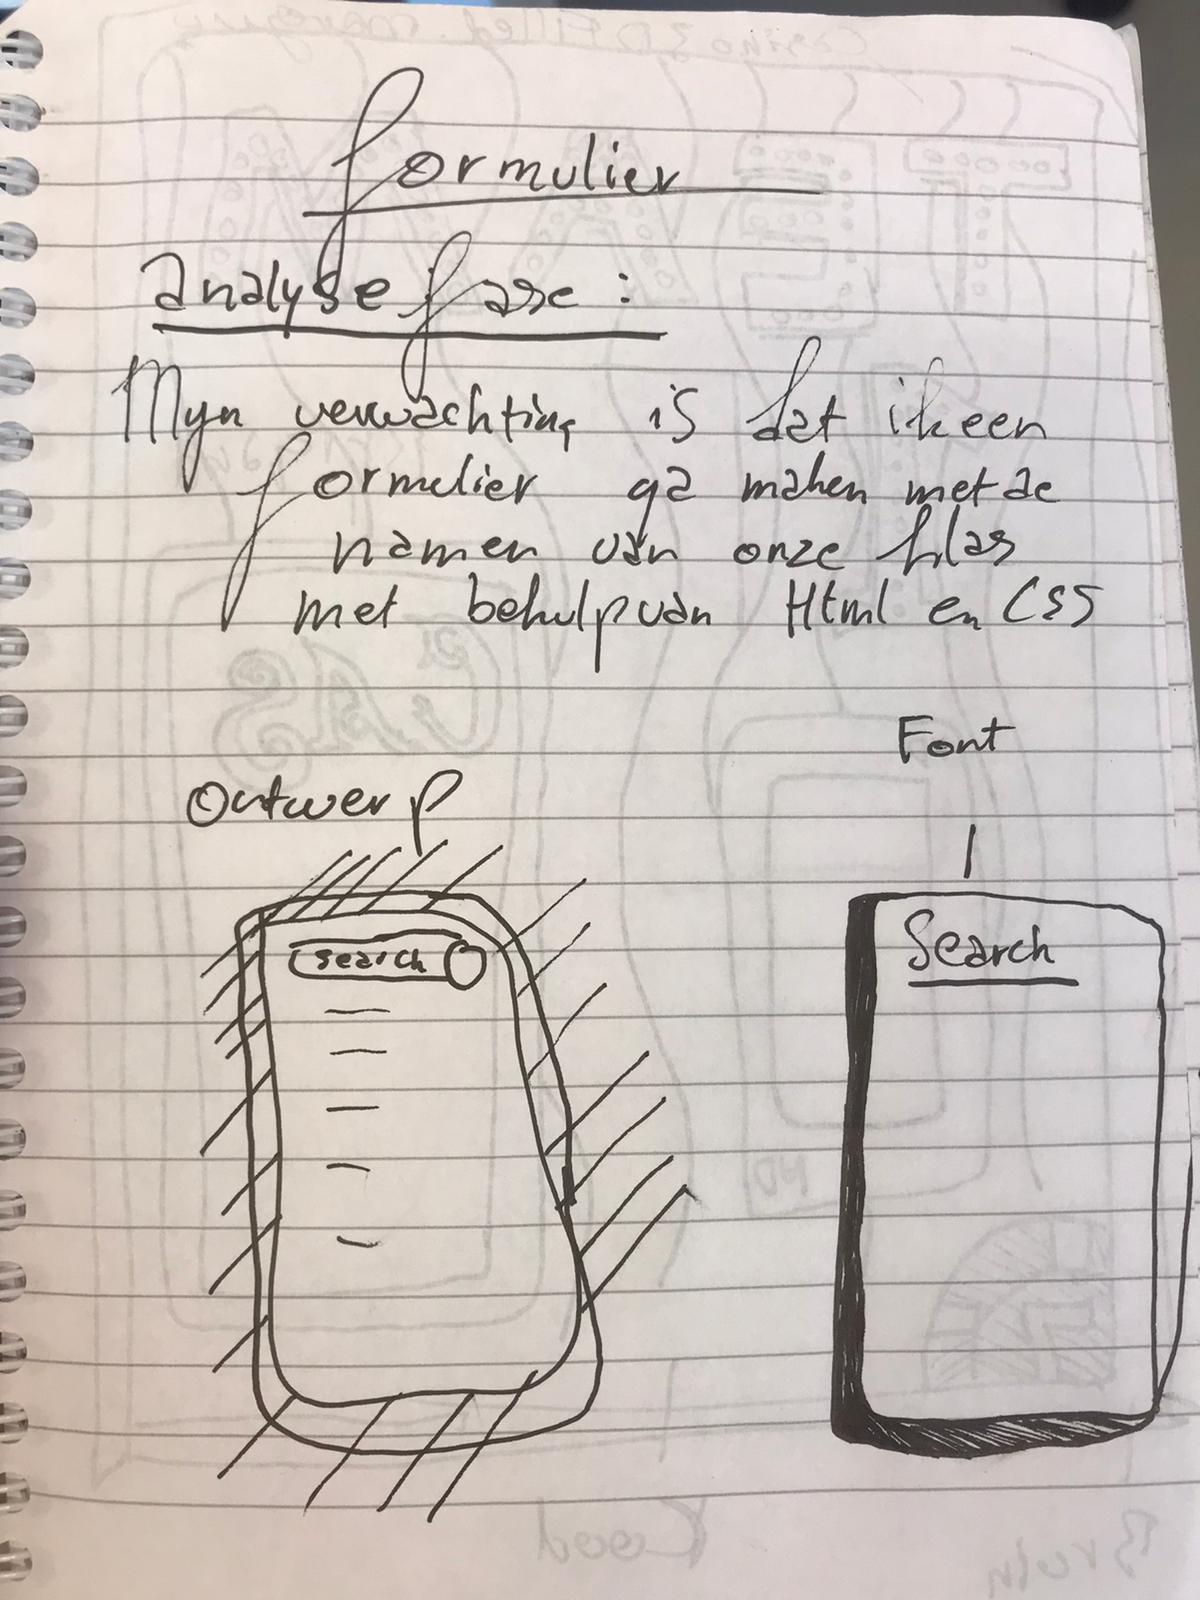 formulier
analyse fase:
Myn verwachting is dat ik een
formulier ga maken met de
namen van onze klas
met behulp van Html en CSS
Font
Ontwerp
search
Search